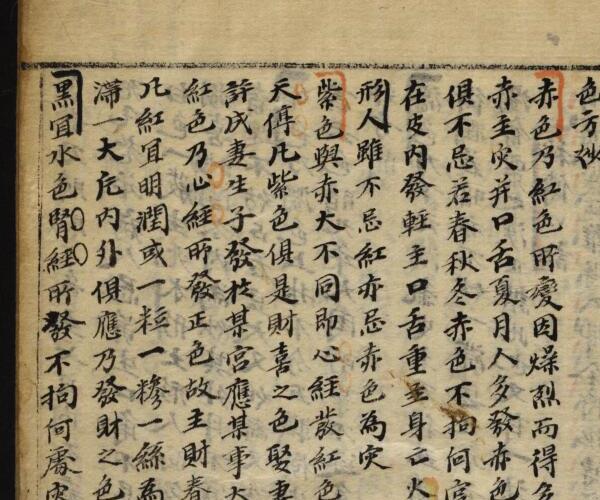 色方妙
赤色乃紅色所變因燥烈而得名
赤主灾并口舌夏月人多發赤色
俱不忌若春秋冬赤色不拘何宫
在皮内發輕主口舌重主身亡火
形人雖不忌紅亦忌赤色為灾
紫色與赤大不同即心經發紅色
天傅凡紫色俱是財喜之色娶妻
許成妻生子發於某宫應某事大
紅色乃心經所發正色故主財春
凡紅宜明潤或一粒一糝一絲為
滞一大凡内外俱應乃發財之色
黑宜水色腎經所發不拘何處灾